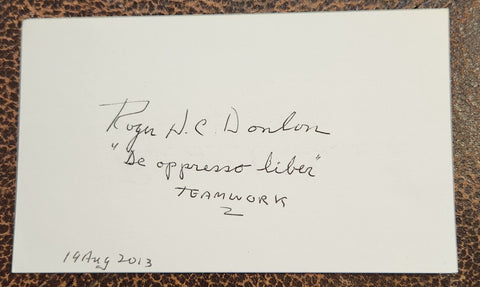 Roger H.C. Donlon
"De oppresso liber"
TEAMWORK
19 Aug 2013